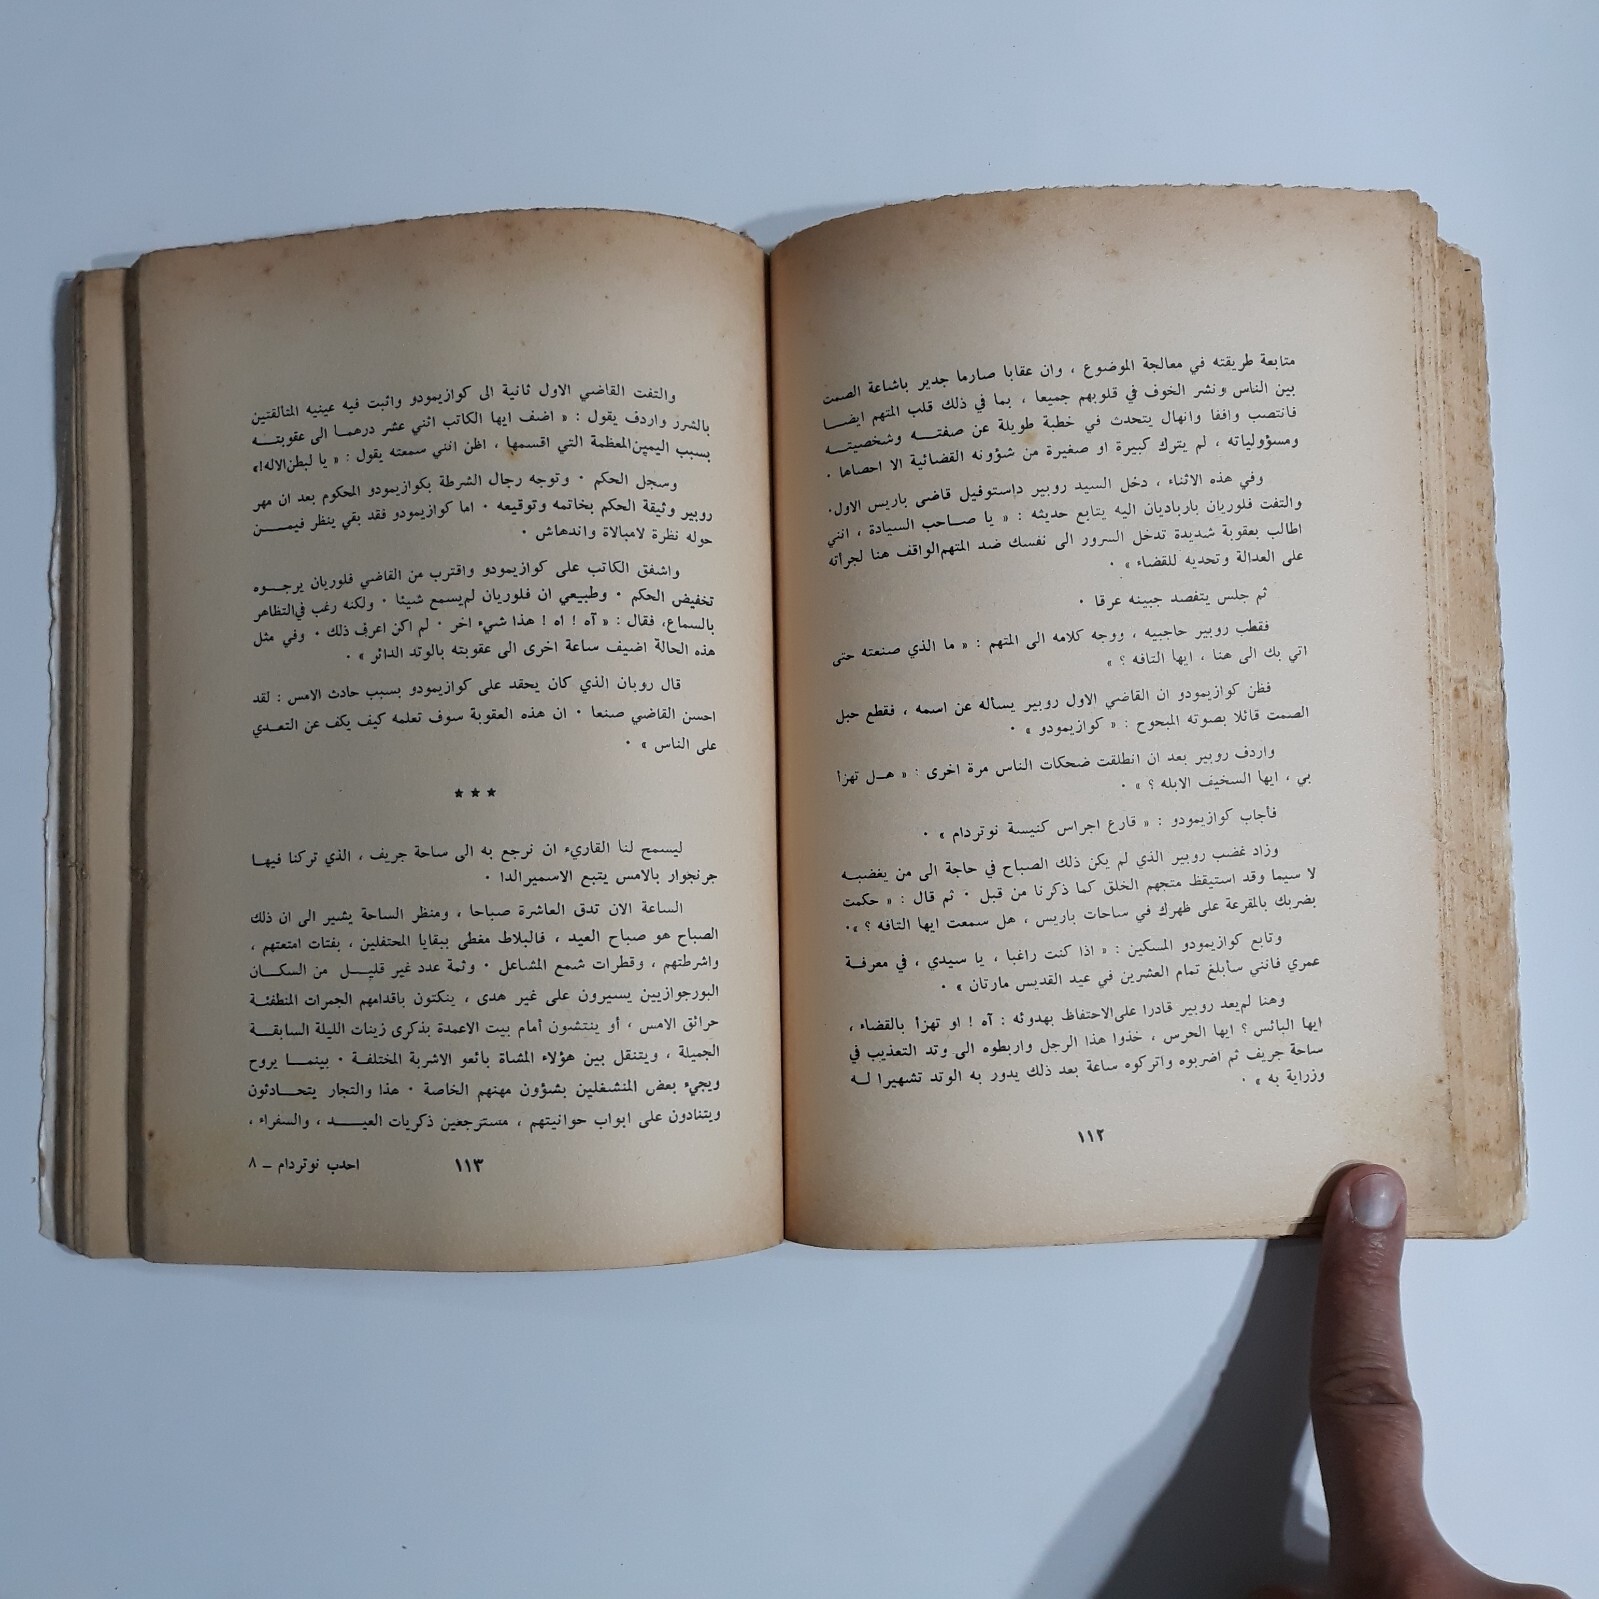 متابعة طريقته في معالجة الموضوع ، وان عقابا صارما جدير باشاعة الصمت
بين الناس ونشر الخوف في قلوبهم جميعا ، بما في ذلك قلب المتهم ايضـا
فانتصب واقفا وانهال يتحدث في خطبة طويلة عن صفتــه وشخصيتــه
ومسؤولياته ، لم يترك كبيرة او صغيرة من شؤونه القضائية الا احصاها ·
وفي هذه الاثناء ، دخل السيد روبير داستوفيل قاضى باريس الاول.
والتفت فلوريان بارباديان اليه يتابع حديثه : « يا صـاحب السيادة ، انني
اطالب بعقوبة شديدة تدخل السرور الى نفسك ضد المتهم الواقف هنا لجرأته
على العدالة وتحديه للقضاء » ·
ثم جلس يتفصد جبينه عرقا ·
فقطب روبير حاجبيه ، ووجه كلامه الى المتهم : « ما الذي صنعته حتى
اتي بك الى هنا ، ايها التافه ؟ »
فظن كوازيمودو ان القاضي الاول روبير يسأله عن اسمه ، فقطع حبل
الصمت قائلا بصوته المبحوح : « كوازيمودو » ·
واردف روبير بعد ان انطلقت ضحكات الناس مرة اخرى : « هـل تهزأ
بي ، ايها السخيف الابله ؟ » ·
فأجاب كوازيمودو : « قارع اجراس كنيسة نوتردام » ·
وزاد غضب روبير الذي لم يكن ذلك الصباح في حاجة الى من يغضبــه
لا سيما وقد استيقظ متجهم الخلق كما ذكرنا من قبل · ثم قال : « حكمت
بضربك بالمقرعة على ظهرك في ساحات باريس ، هل سمعت ايها التافه ؟ »·
وتابع كوازيمودو المسكين : « اذا كنت راغبا ، يا سيدي ، في معرفـة
عمري فانني سأبلغ تمام العشرين في عيد القديس مارتان » ·
وهنا لم يعد روبير قادرا على الاحتفاظ بهدوئه : آه ! او تهزأ بالقضاء ،
ايها البائس ؟ ايها الحرس ، خذوا هذا الرجل واربطوه الى وتد التعذيب في
ساحة جريف ثم اضربوه واتركوه ساعة بعد ذلك يدور به الوتد تشهيرا لـه
وزراية به » ·
١١٢
والتفت القاضي الاول ثانية الى كوازيمودو واثبت فيه عينيه المتالقتين
بالشرر واردف يقول : « اضف ايها الكاتب اثني عشر درهمـا الى عقوبتــه
بسبب اليمين المعظمة التي اقسمها ، اظن انني سمعته يقول : « يا لبطن الاله!»
وسجل الحكم · وتوجه رجال الشرطة بكوازيمودو المحكوم بعد ان مهر
روبير وثيقة الحكم بخاتمه وتوقيعه · اما كوازيمودو فقد بقي ينظر فيمــن
حوله نظرة لامبالاة واندهاش ·
واشفق الكاتب على كوازيمودو واقترب من القاضي فلوريان يرجــوه
تخفيض الحكم · وطبيعي ان فلوريان لم يسمع شيئا · ولكنه رغب في التظاهر
بالسماع، فقال : « آه ! اه ! هذا شيء اخر · لم اكن اعرف ذلك · وفي مثل
هذه الحالة اضيف ساعة اخرى الى عقوبته بالوتد الدائر » ·
قال روبان الذي كان يحقد على كوازيمودو بسبب حادث الامس : لقد
احسن القاضي صنعا · ان هذه العقوبة سوف تعلمه كيف يكف عن التعـدي
على الناس » ·
★ ★ ★
ليسمح لنا القاريء ان نرجع به الى ساحة جريف ، الذي تركنا فيهـا
جرنجوار بالامس يتبع الاسميرالدا ·
الساعة الان تدق العاشرة صباحا ، ومنظر الساحة يشير الى ان ذلك
الصباح هو صباح العيد ، فالبلاط مغطى ببقايا المحتفلين ، بفتات امتعتهم ،
واشرطتهم ، وقطرات شمع المشاعل · وثمة عدد غير قليــل من السكـان
البورجوازيين يسيرون على غير هدى ، ينكتون باقدامهم الجمرات المنطفئـة
حرائق الامس ، أو ينتشون أمام بيت الاعمدة بذكرى زينات الليلة السابقـة
الجميلة ، ويتنقل بين هؤلاء المشاة بائعو الاشربة المختلفـة · بينمـا يروح
ويجيء بعض المنشغلين بشؤون مهنهم الخاصة · هذا والتجار يتحـادثون
ويتنادون على ابواب حوانيتهم ، مسترجعين ذكريات العيــد ، والسفراء ،
١١٣
احدب نوتردام ــ ٨